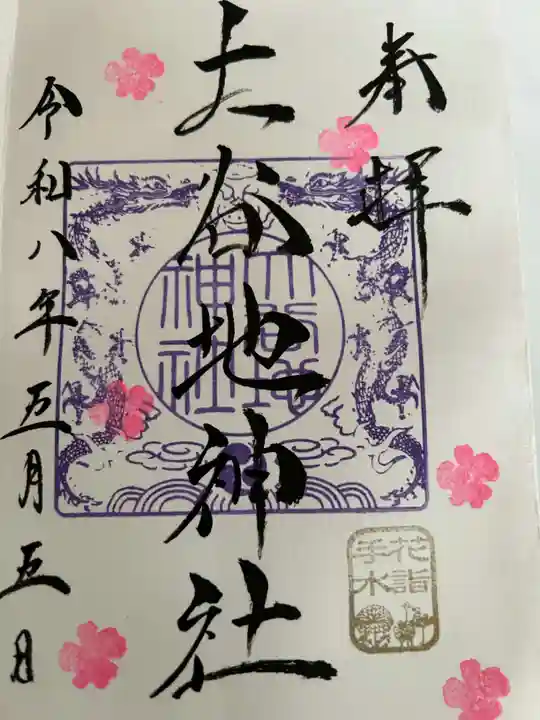 奉拝
大谷地神社
令和八年五月五日
大谷地
神社
花詣
手水